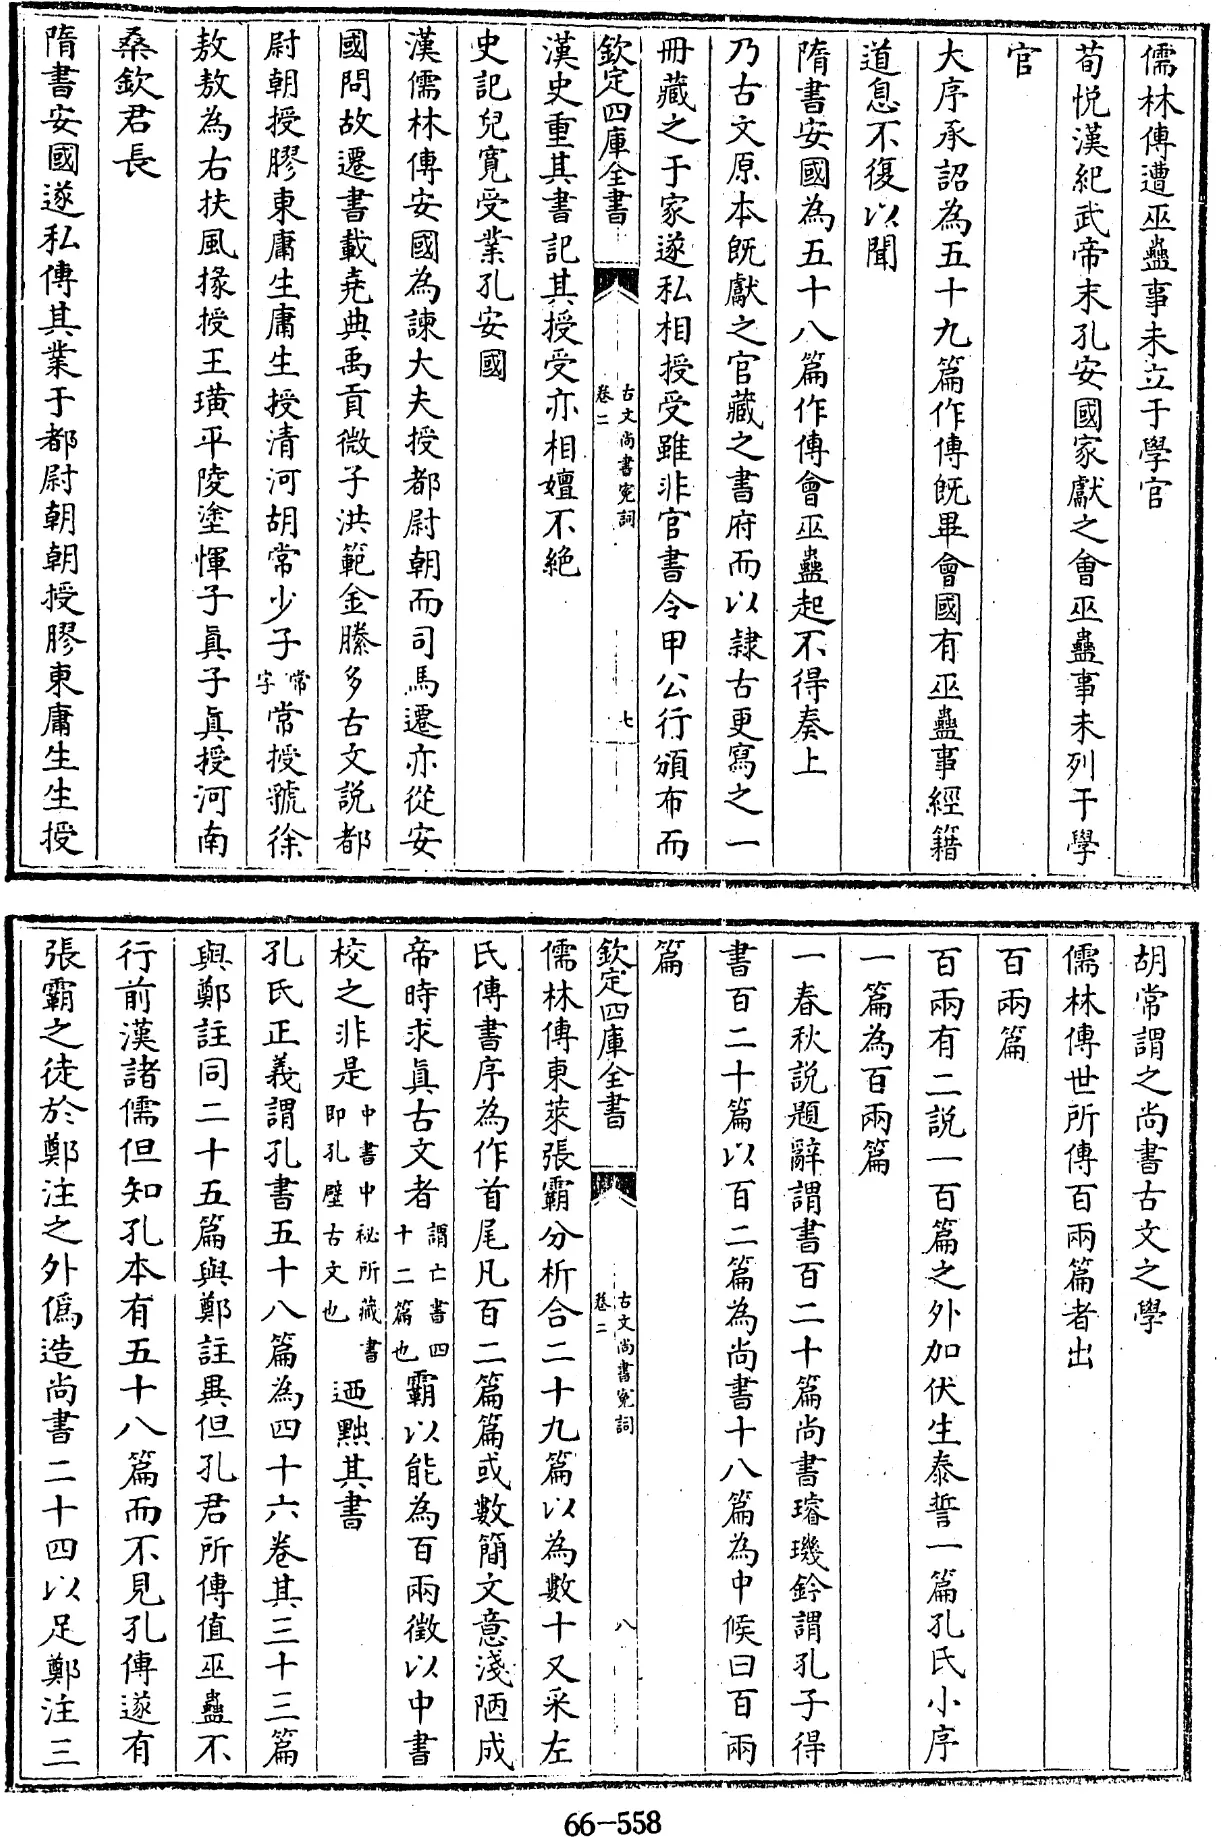 儒林傳遭巫蠱事未立于學官
荀悅漢紀武帝末孔安國家獻之會巫蠱事未列于學
官
大序承詔為五十九篇作傳既畢會國有巫蠱事經籍
道息不復以聞
隋書安國為五十八篇作傳會巫蠱起不得奏上
乃古文原本既獻之官藏之書府而以隸古更寫之一
冊藏之于家遂私相授受雖非官書令甲公行頒布而
欽定四庫全書
古文尚書寃詞
卷二
七
漢史重其書記其授受亦相嬗不絶
史記兒寬受業孔安國
漢儒林傳安國為諫大夫授都尉朝而司馬遷亦從安
國問故遷書載堯典禹貢微子洪範金縢多古文說都
尉朝授膠東庸生庸生授清河胡常少子常字常授虢徐
敖敖為右扶風掾授王璜平陵塗惲子真子真授河南
桑欽君長
隋書安國遂私傳其業于都尉朝朝授膠東庸生生授
胡常謂之尚書古文之學
儒林傳世所傳百兩篇者出
百兩篇
百兩有二說一百篇之外加伏生泰誓一篇孔氏小序
一篇為百兩篇
一春秋說題辭謂書百二十篇尚書璿璣鈐謂孔子得
書百二十篇以百二篇為尚書十八篇為中候曰百兩
篇
欽定四庫全書
古文尚書寃詞
卷二
八
儒林傳東萊張霸分析合二十九篇以為數十又采左
氏傳書序為作首尾凡百二篇篇或數簡文意淺陋成
帝時求真古文者謂亡書四十二篇也霸以能為百兩徵以中書
校之非是中書中秘所藏書即孔壁古文也迺黜其書
孔氏正義謂孔書五十八篇為四十六卷其三十三篇
與鄭註同二十五篇與鄭註異但孔君所傳值巫蠱不
行前漢諸儒但知孔本有五十八篇而不見孔傳遂有
張霸之徒於鄭注之外僞造尚書二十四以足鄭注三
66-558